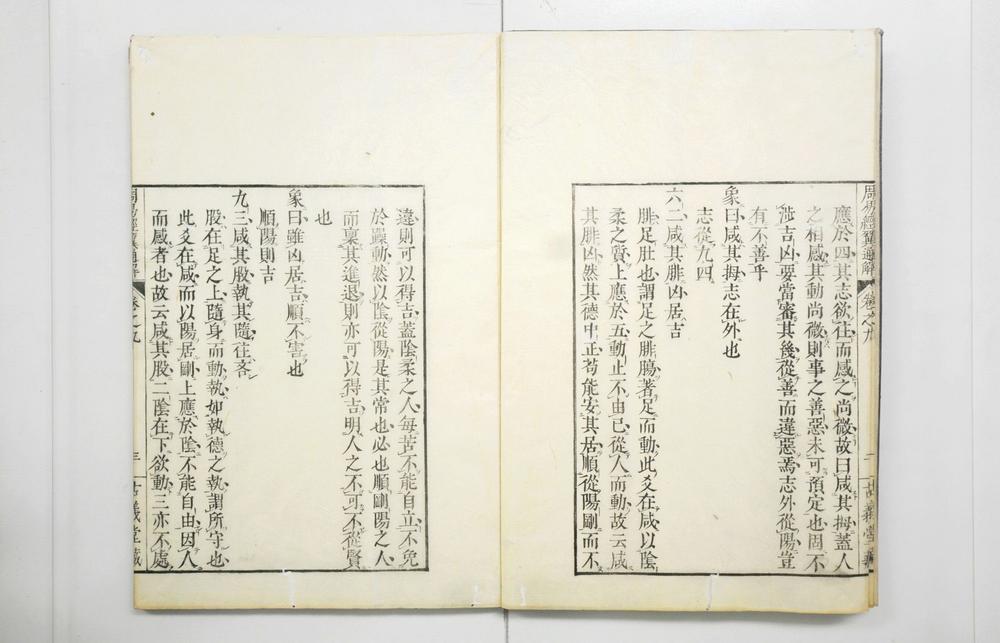 周易經翼通解 卷之九 二 古義堂藏
應於四其志欲往而感之尚微故曰咸其拇蓋人
之相感其動尚微則事之善惡未可預定也固不
涉吉凶要當審其幾從善而違惡焉志外從陽豈
有不善乎
象曰咸其拇志在外也
志從九四
六二咸其腓凶居吉
腓足肚也謂足之腓膓著足而動此爻在咸以陰
柔之質上應於五動止不由己從人而動故云咸
其腓凶然其德中正苟能安其居順從陽剛而不
違則可以得吉蓋陰柔之人每苦不能自立不免
於躁動然以陰從陽是其常也必也順剛陽之人
而稟其進退則亦可以得吉明人之不可不從賢
也
象曰雖凶居吉順不害也
順陽則吉
九三咸其股執其隨往吝
股在足之上隨身而動執如執德之執謂所守也
此爻在咸而以陽居剛上應於陰不能自由因人
而感者也故云咸其股二陰在下欲動三亦不處
周易經翼通解 卷之九 三 古義堂藏